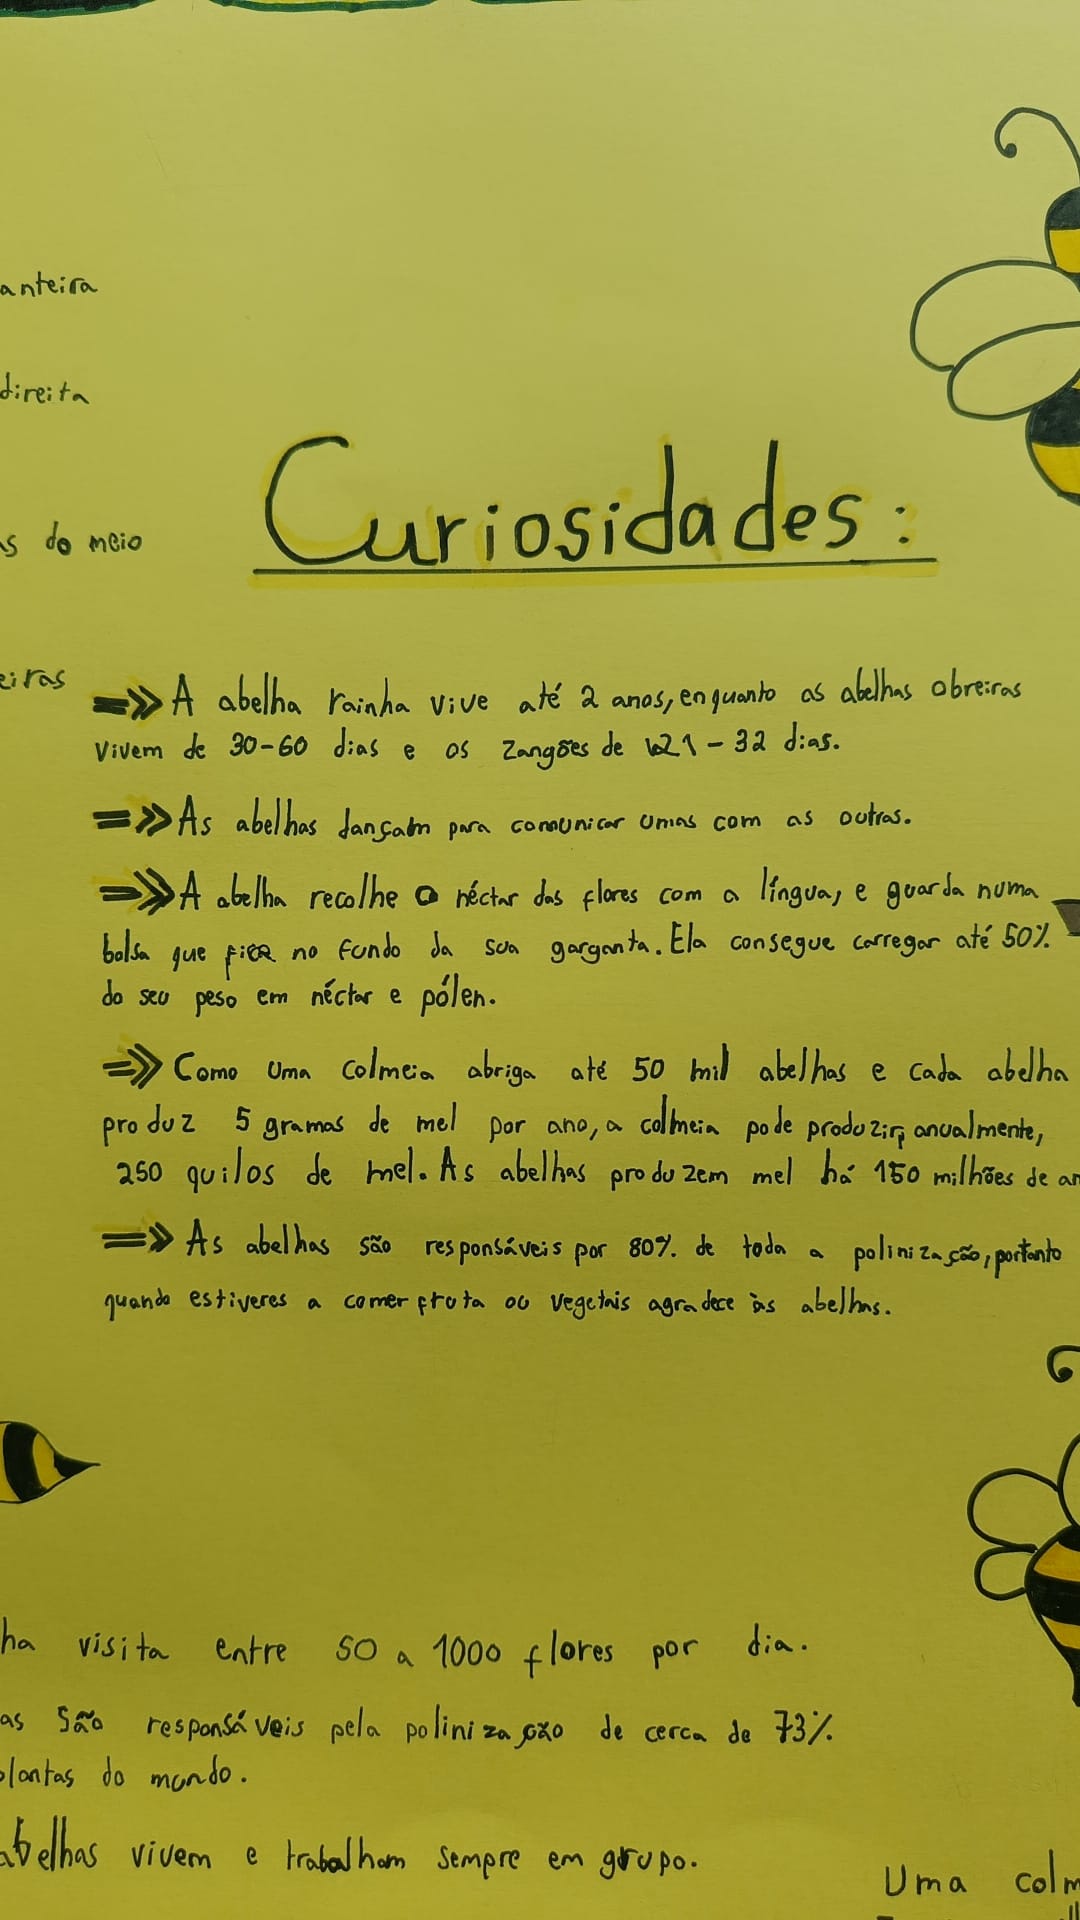 anteira
direita
s do meio
Curiosidades:
eiras
=>> A abelha rainha vive até 2 anos, enquanto as abelhas obreiras
vivem de 30-60 dias e os zangões de 21-32 dias.
=>> As abelhas dançam para comunicar umas com as outras.
=>> A abelha recolhe o néctar das flores com a língua, e guarda numa
bolsa que fica no fundo da sua garganta. Ela consegue carregar até 50%
do seu peso em néctar e pólen.
=>> Como uma colmeia abriga até 50 mil abelhas e cada abelha
produz 5 gramas de mel por ano, a colmeia pode produzir, anualmente,
250 quilos de mel. As abelhas produzem mel há 150 milhões de an
=>> As abelhas são responsáveis por 80% de toda a polinização, portanto
quando estiveres a comer fruta ou vegetais agradece às abelhas.
ha visita entre 50 a 1000 flores por dia.
as são responsáveis pela polinização de cerca de 73%
plantas do mundo.
abelhas vivem e trabalham sempre em grupo.
Uma colm